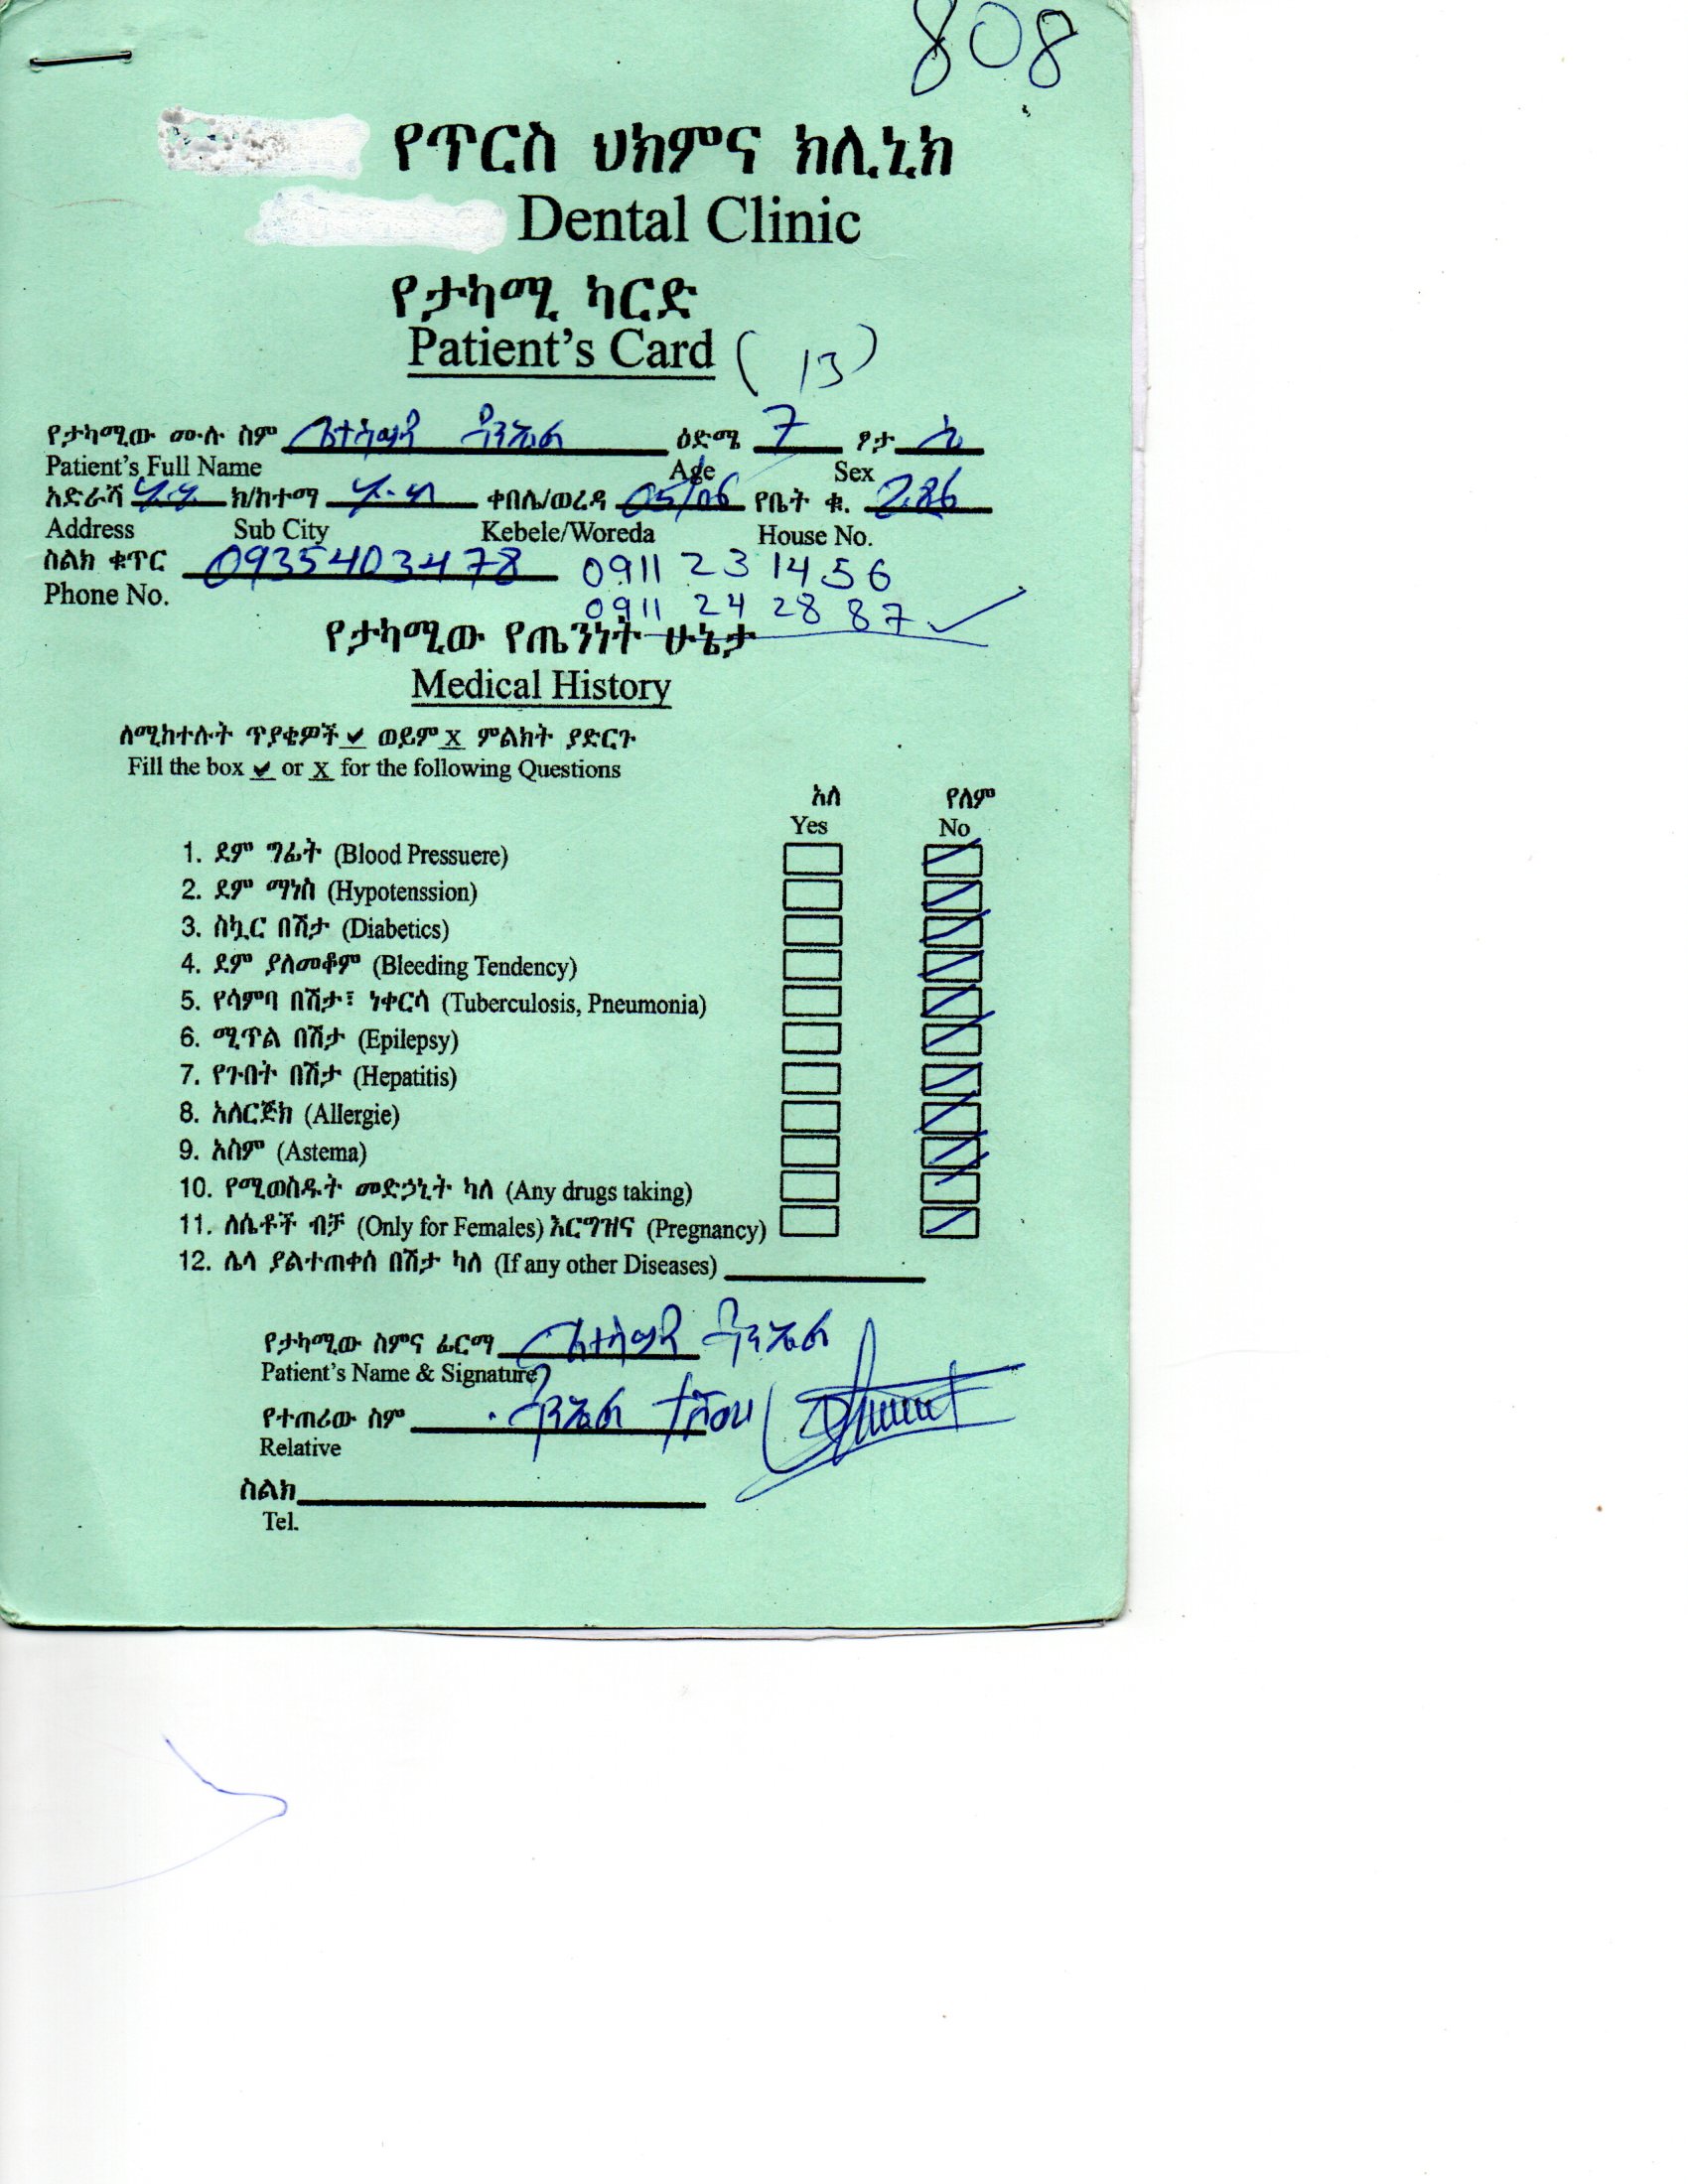 808
የጥርስ ህክምና ክሊኒክ
Dental Clinic
የታካሚ ካርድ
Patient's Card ( 13 )
የታካሚው ሙሉ ስም ዳንኤል ዕድሜ 7 ፆታ ሴ
Patient's Full Name Age Sex
አድራሻ ክ/ከተማ ቀበሌ/ወረዳ 05/06 የቤት ቁ. 286
Address Sub City Kebele/Woreda House No.
ስልክ ቁጥር 0935403478 0911 23 14 56
Phone No. 0911 24 28 87 ✓
የታካሚው የጤንነት ሁኔታ
Medical History
ለሚከተሉት ጥያቄዎች ✔ ወይም X ምልክት ያድርጉ
Fill the box ✔ or X for the following Questions
አለ የለም
Yes No
1. ደም ግፊት (Blood Pressuere)
2. ደም ማነስ (Hypotenssion)
3. ስኳር በሽታ (Diabetics)
4. ደም ያለመቆም (Bleeding Tendency)
5. የሳምባ በሽታ፣ ነቀርሳ (Tuberculosis, Pneumonia)
6. ሚጥል በሽታ (Epilepsy)
7. የጉበት በሽታ (Hepatitis)
8. አለርጅክ (Allergie)
9. አስም (Astema)
10. የሚወስዱት መድኃኒት ካለ (Any drugs taking)
11. ለሴቶች ብቻ (Only for Females) እርግዝና (Pregnancy)
12. ሌላ ያልተጠቀሰ በሽታ ካለ (If any other Diseases)
የታካሚው ስምና ፊርማ ዳንኤል
Patient's Name & Signature
የተጠሪው ስም ዳንኤል
Relative
ስልክ
Tel.